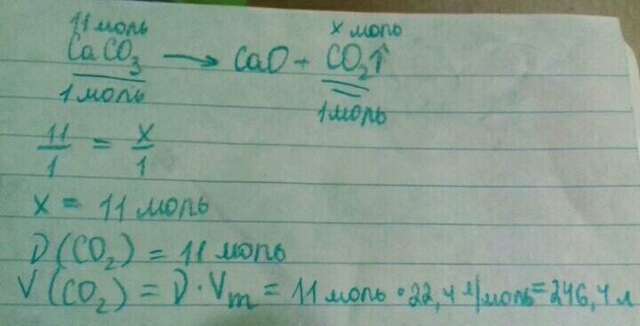 11 моль x моль
CaCO₃ → CaO + CO₂↑
1 моль 1 моль
11/1 = x/1
x = 11 моль
ν(CO₂) = 11 моль
V(CO₂) = ν · Vm = 11 моль · 22,4 л/моль = 246,4 л